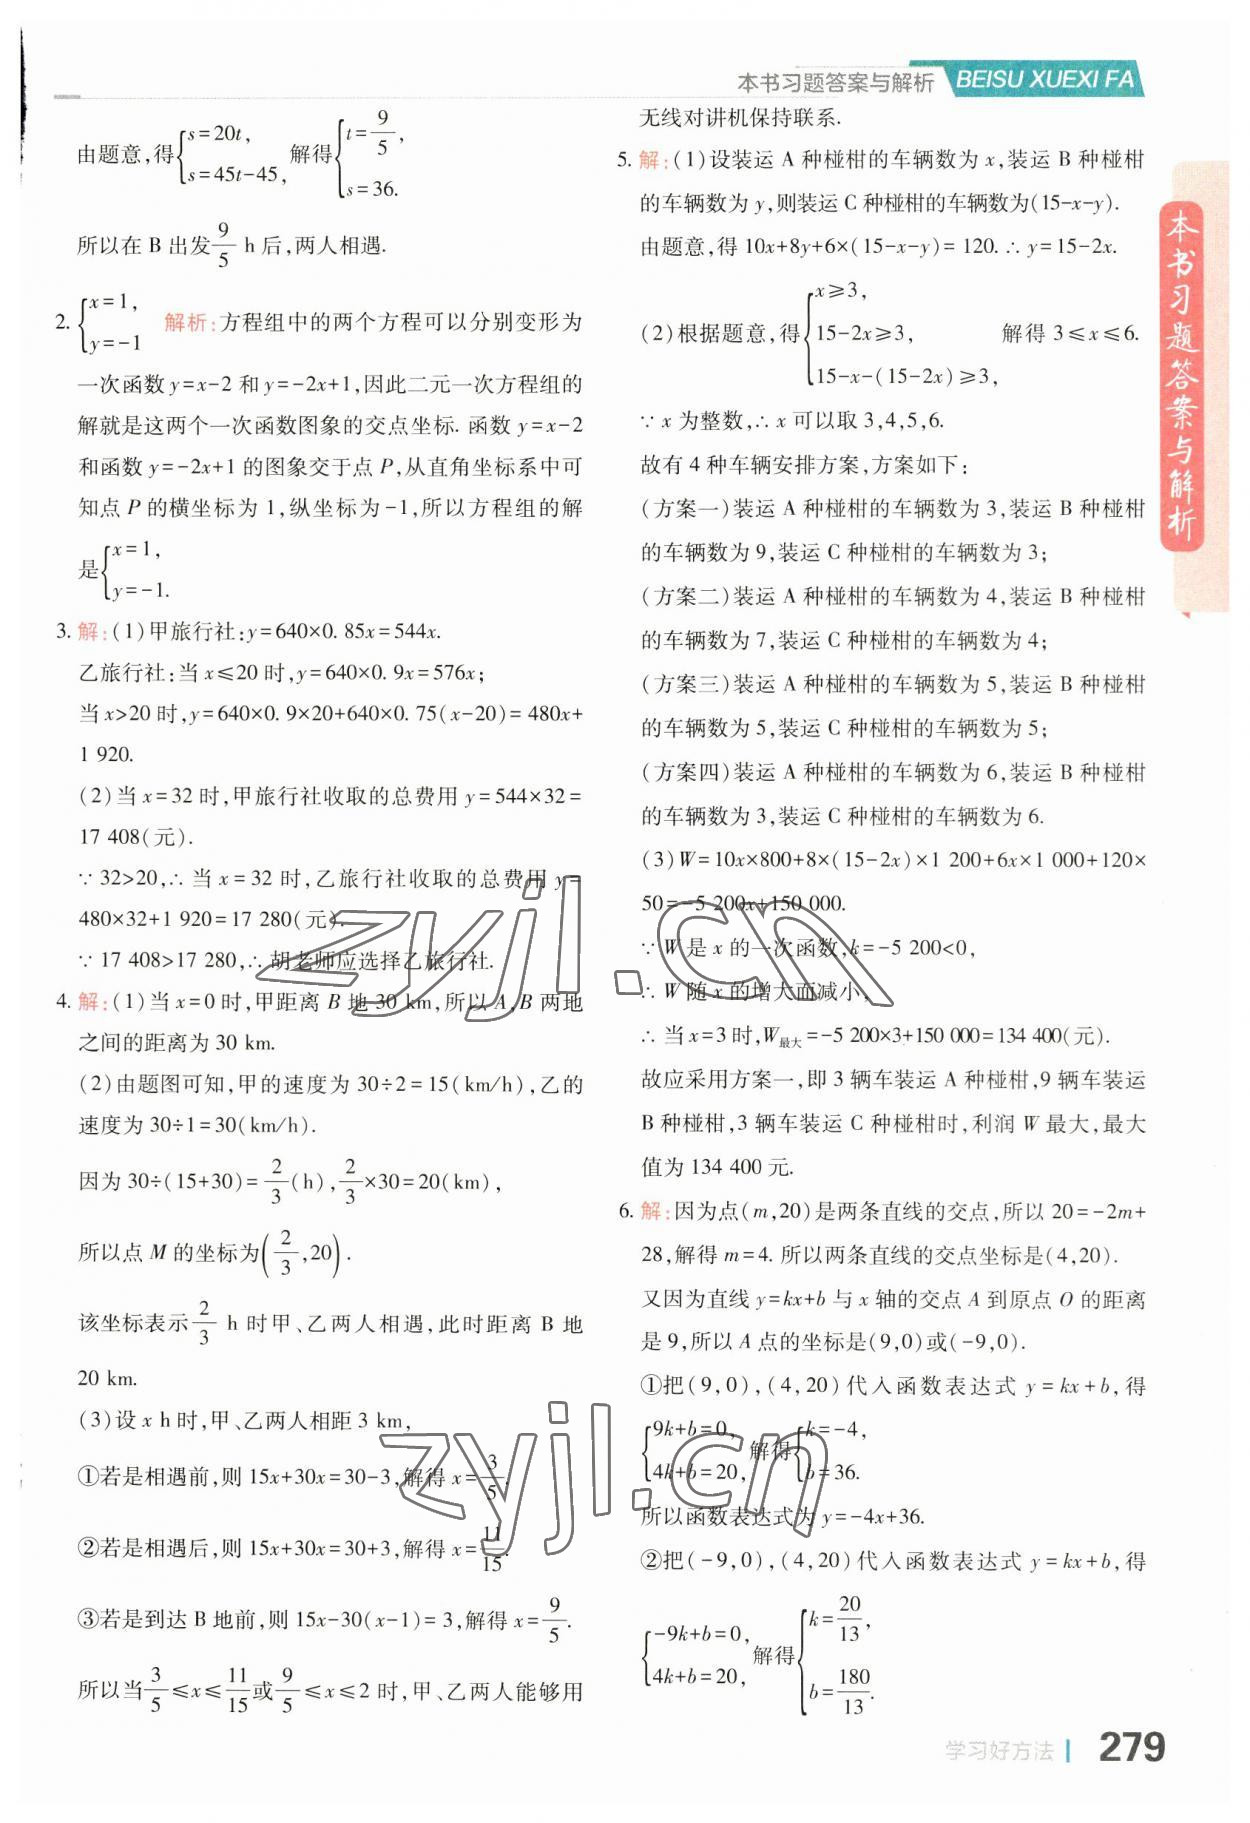 本书习题答案与解析 BEISU XUEXI FA
由题意,得{s=20t, s=45t-45, 解得{t=9/5, s=36.
所以在 B 出发9/5 h 后,两人相遇.
2. {x=1, y=-1 解析:方程组中的两个方程可以分别变形为
一次函数 y=x-2 和 y=-2x+1,因此二元一次方程组的
解就是这两个一次函数图象的交点坐标. 函数 y=x-2
和函数 y=-2x+1 的图象交于点 P,从直角坐标系中可
知点 P 的横坐标为 1,纵坐标为-1,所以方程组的解
是{x=1, y=-1.
3. 解:(1)甲旅行社:y=640×0. 85x=544x.
乙旅行社:当 x≤20 时,y=640×0. 9x=576x;
当 x>20 时,y=640×0. 9×20+640×0. 75(x-20)=480x+
1 920.
(2)当 x=32 时,甲旅行社收取的总费用 y=544×32=
17 408(元).
∵ 32>20,∴ 当 x=32 时,乙旅行社收取的总费用 y=
480×32+1 920=17 280(元).
∵ 17 408>17 280,∴ 胡老师应选择乙旅行社.
4. 解:(1)当 x=0 时,甲距离 B 地 30 km,所以 A,B 两地
之间的距离为 30 km.
(2)由题图可知,甲的速度为 30÷2=15(km/h),乙的
速度为 30÷1=30(km/h).
因为 30÷(15+30)=2/3(h),2/3×30=20(km),
所以点 M 的坐标为(2/3,20).
该坐标表示2/3 h 时甲、乙两人相遇,此时距离 B 地
20 km.
(3)设 x h 时,甲、乙两人相距 3 km,
①若是相遇前,则 15x+30x=30-3,解得 x=3/5.
②若是相遇后,则 15x+30x=30+3,解得 x=11/15.
③若是到达 B 地前,则 15x-30(x-1)=3,解得 x=9/5.
所以当3/5≤x≤11/15或9/5≤x≤2 时,甲、乙两人能够用
无线对讲机保持联系.
5. 解:(1)设装运 A 种椪柑的车辆数为 x,装运 B 种椪柑
的车辆数为 y,则装运 C 种椪柑的车辆数为(15-x-y).
由题意,得 10x+8y+6×(15-x-y)=120. ∴ y=15-2x.
(2)根据题意,得{x≥3, 15-2x≥3, 15-x-(15-2x)≥3, 解得 3≤x≤6.
∵ x 为整数,∴ x 可以取 3,4,5,6.
故有 4 种车辆安排方案,方案如下:
(方案一)装运 A 种椪柑的车辆数为 3,装运 B 种椪柑
的车辆数为 9,装运 C 种椪柑的车辆数为 3;
(方案二)装运 A 种椪柑的车辆数为 4,装运 B 种椪柑
的车辆数为 7,装运 C 种椪柑的车辆数为 4;
(方案三)装运 A 种椪柑的车辆数为 5,装运 B 种椪柑
的车辆数为 5,装运 C 种椪柑的车辆数为 5;
(方案四)装运 A 种椪柑的车辆数为 6,装运 B 种椪柑
的车辆数为 3,装运 C 种椪柑的车辆数为 6.
(3)W=10x×800+8×(15-2x)×1 200+6x×1 000+120×
50=-5 200x+150 000.
∵ W 是 x 的一次函数,k=-5 200<0,
∴ W 随 x 的增大而减小,
∴ 当 x=3 时,W最大=-5 200×3+150 000=134 400(元).
故应采用方案一,即 3 辆车装运 A 种椪柑,9 辆车装运
B 种椪柑,3 辆车装运 C 种椪柑时,利润 W 最大,最大
值为 134 400 元.
6. 解:因为点(m,20)是两条直线的交点,所以 20=-2m+
28,解得 m=4. 所以两条直线的交点坐标是(4,20).
又因为直线 y=kx+b 与 x 轴的交点 A 到原点 O 的距离
是 9,所以 A 点的坐标是(9,0)或(-9,0).
①把(9,0),(4,20)代入函数表达式 y=kx+b,得
{9k+b=0, 4k+b=20, 解得{k=-4, b=36.
所以函数表达式为 y=-4x+36.
②把(-9,0),(4,20)代入函数表达式 y=kx+b,得
{-9k+b=0, 4k+b=20, 解得{k=20/13, b=180/13.
本书习题答案与解析
zyjl.cn
zyjl.cn
学习好方法 279